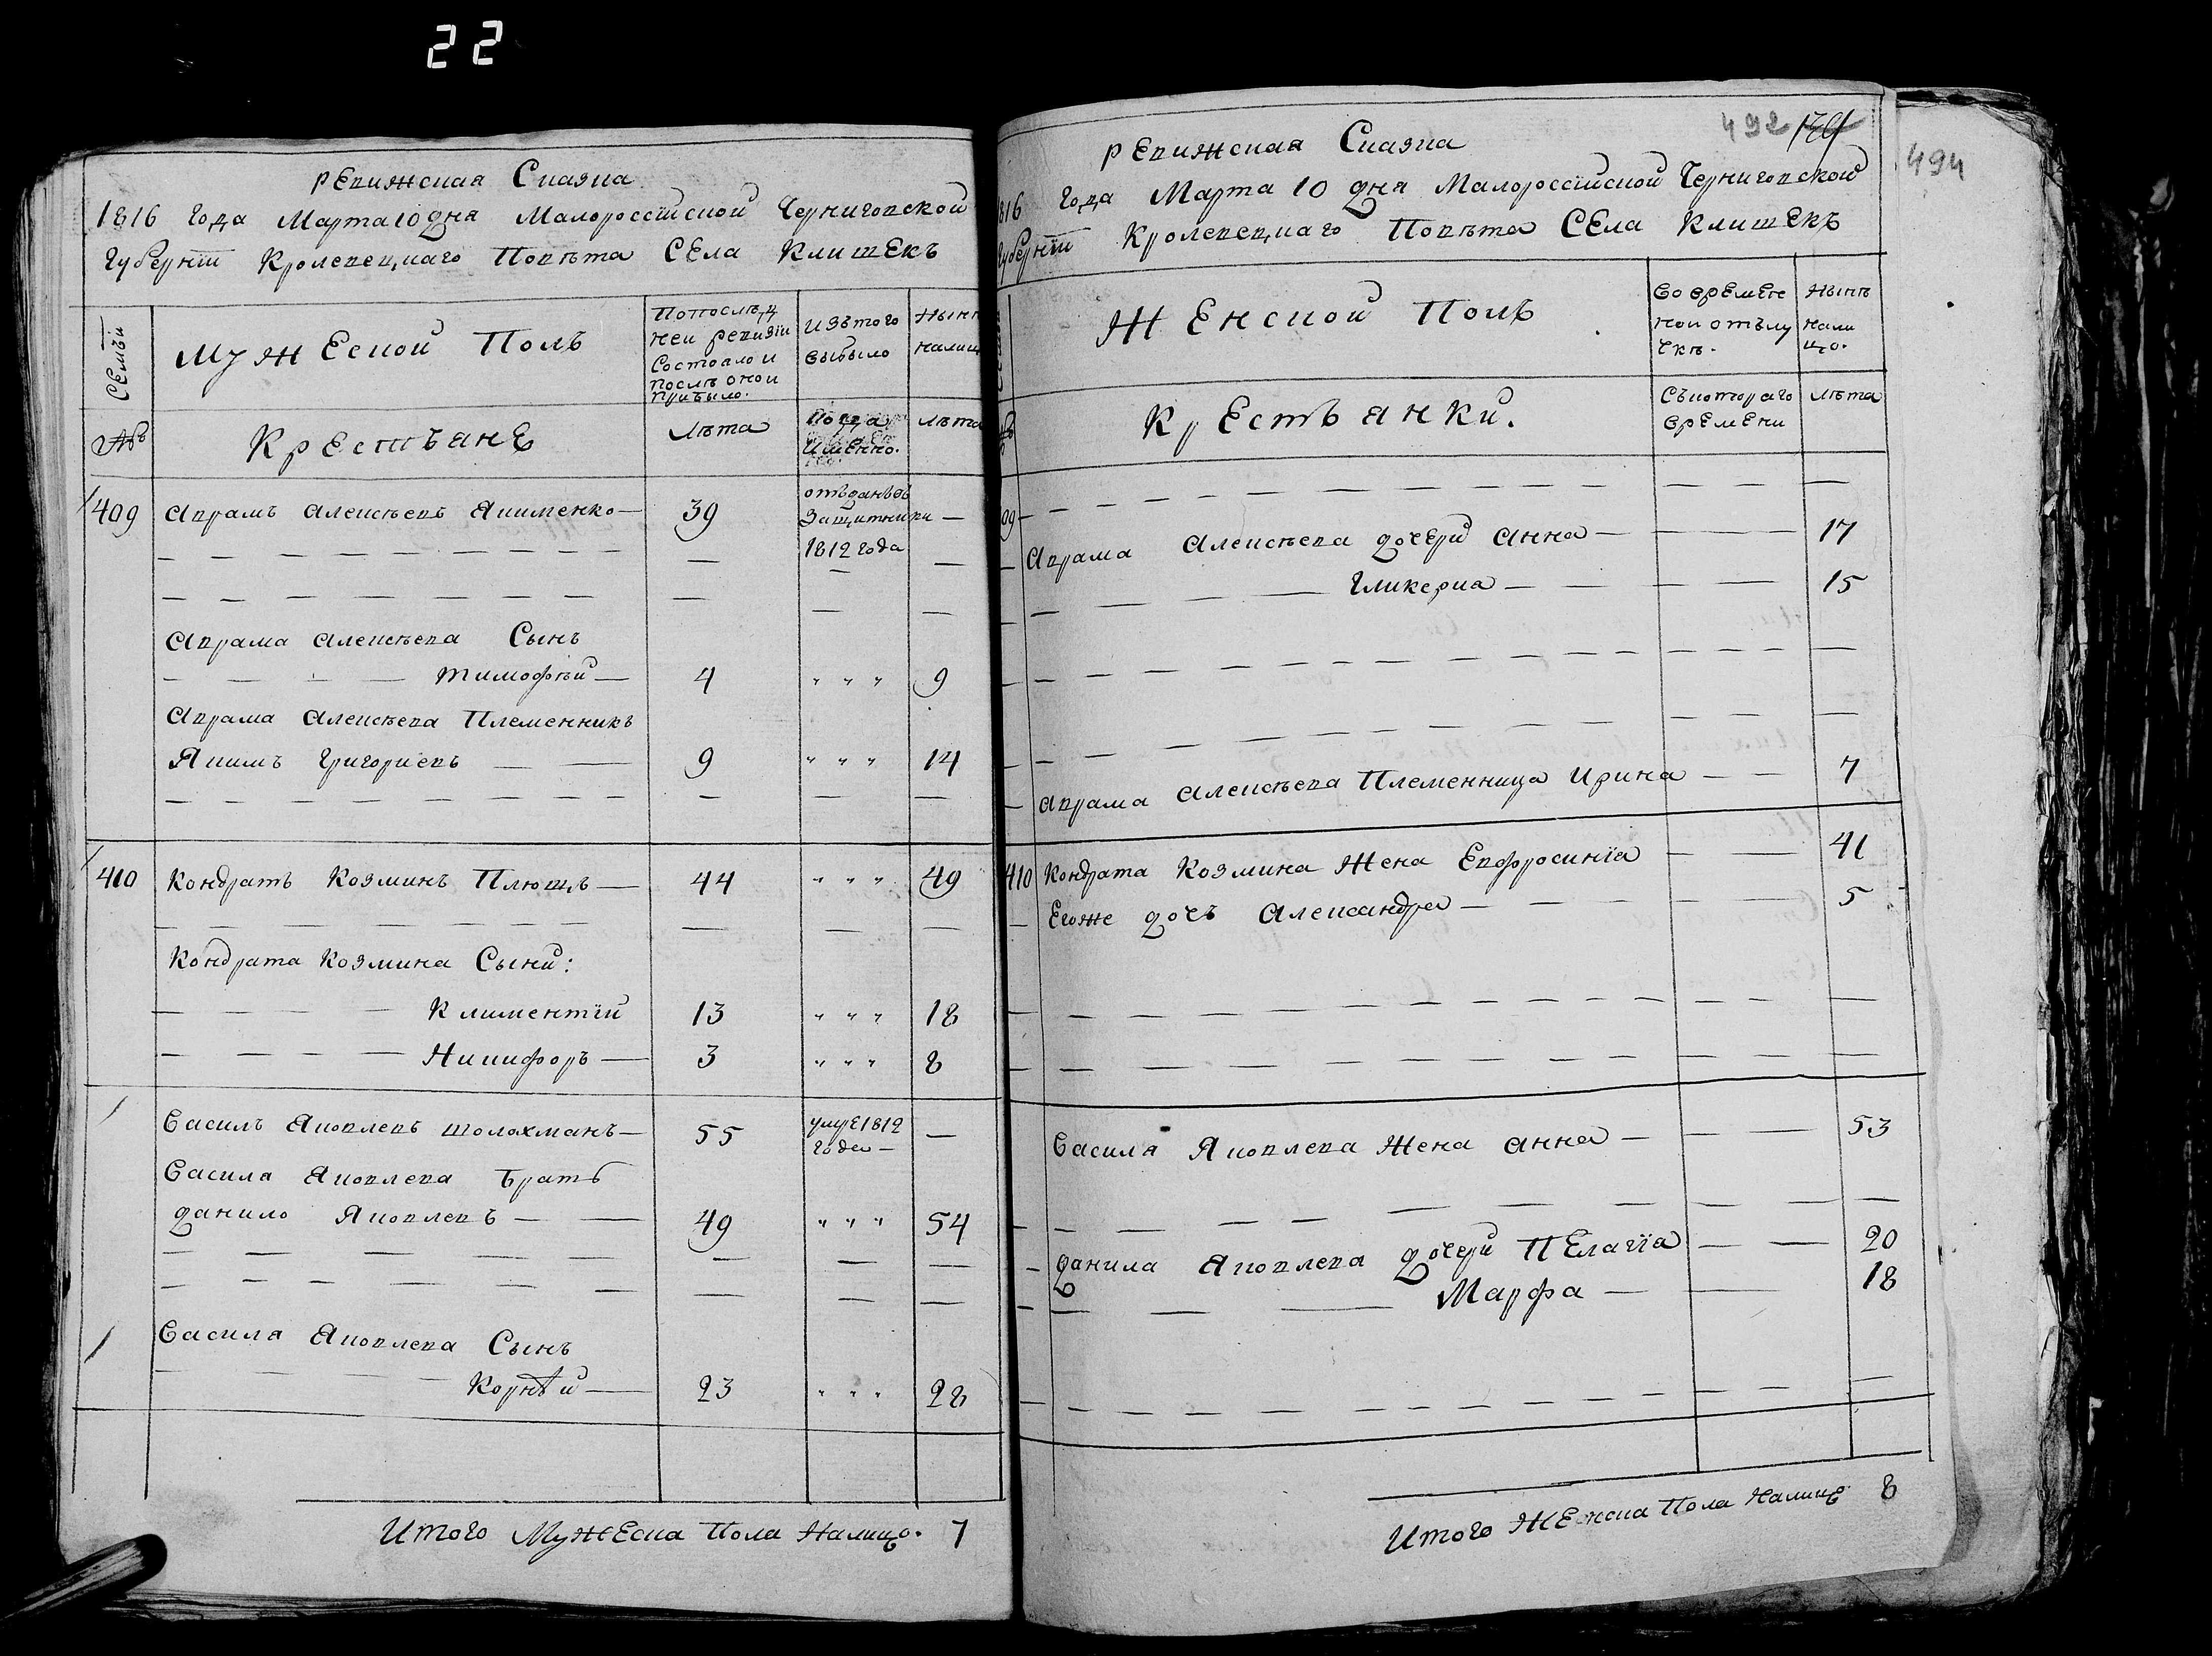 22
Ревижская Сказка
1816 года Марта 10 дня Малороссійской Черниговской
Губерніи Кролевецкаго Повѣта Села Клишекъ
Семьи
Мужеской Полъ
По последней ревизіи состояло и после оной прибыло.
Изъ того выбыло
Нынѣ налицо
№
Крестьяне
Лѣта
Когда именно.
Лѣта
409 Аврамъ Алексѣевъ Якименко — 39 отъданъ въ защитники 1812 года —
Аврама Алексѣева Сынъ
Тимофѣй — 4 " " " 9
Аврама Алексѣева Племенникъ
Якимъ Григориевъ — — 9 " " " 14
410 Кондратъ Козминъ Плющъ — 44 " " " 49
Кондрата Козмина Сыни:
Климентій 13 " " " 18
Никифоръ — 3 " " " 8
Василъ Яковлевъ Шолохманъ — 55 умре 1812 года — —
Васила Яковлева Братъ
Данило Яковлевъ — — 49 " " " 54
Василя Яковлева Сынъ
Корнѣй — 23 " " " 28
Итого Мужеска Пола Налицо. 7
492
494
Ревижская Сказка
1816 Года Марта 10 дня Малороссійской Черниговской
Губерніи Кролевецкаго Повѣта Села Клишекъ
Женской Полъ
Во временной отълучкѣ.
Нынѣ налицо.
№
Крестьянки.
Съ котораго времени
Лѣта
409
Аврама Алексѣева дочери Анна — — 17
Гликериа — — 15
Аврама Алексѣева Племенница Ирина — — 7
410 Кондрата Козмина Жена Евфросинія — — 41
Егоже дочь Александра — — 5
Василя Яковлева Жена Анна — — 53
Данила Яковлева дочери Пелагія — — 20
Марфа — — 18
Итого Женска Пола Налицо 8